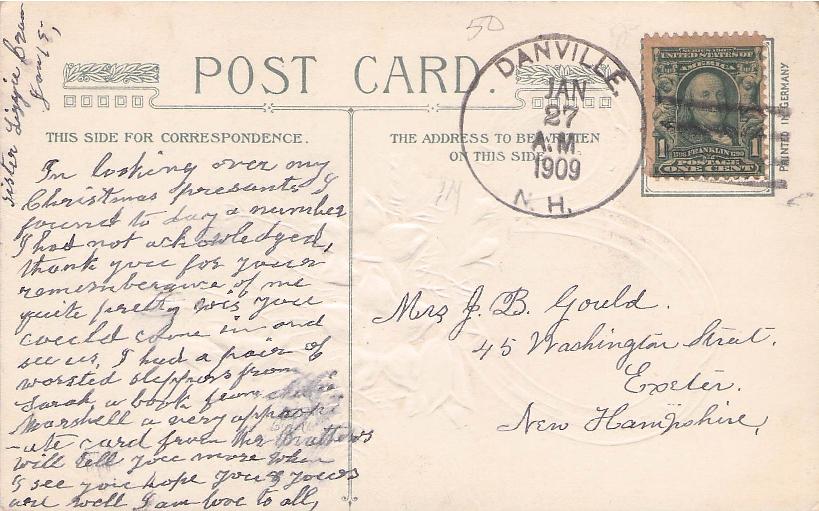 50
POST CARD.
THIS SIDE FOR CORRESPONDENCE.
THE ADDRESS TO BE WRITTEN
ON THIS SIDE
DANVILLE
JAN
27
A.M
1909
N.H.
SERIES 1902
UNITED STATES OF
AMERICA
1 FRANKLIN 1
POSTAGE
ONE CENT
PRINTED IN GERMANY
sister Lizzie
In looking over my
Christmas presents I
found to day a number
I had not acknowledged,
thank you for your
rememberance of me
quite pretty wis you
could come in and
see us, I had a pair of
worsted slippers from
Sarah a book from
Marshell a very appropri
-ate card from Mrs Brathers
will tell you more when
I see you hope you & yours
are well I am love to all,
Mrs J. B. Gould.
45 Washington Strat.
Exeter.
New Hampshire,